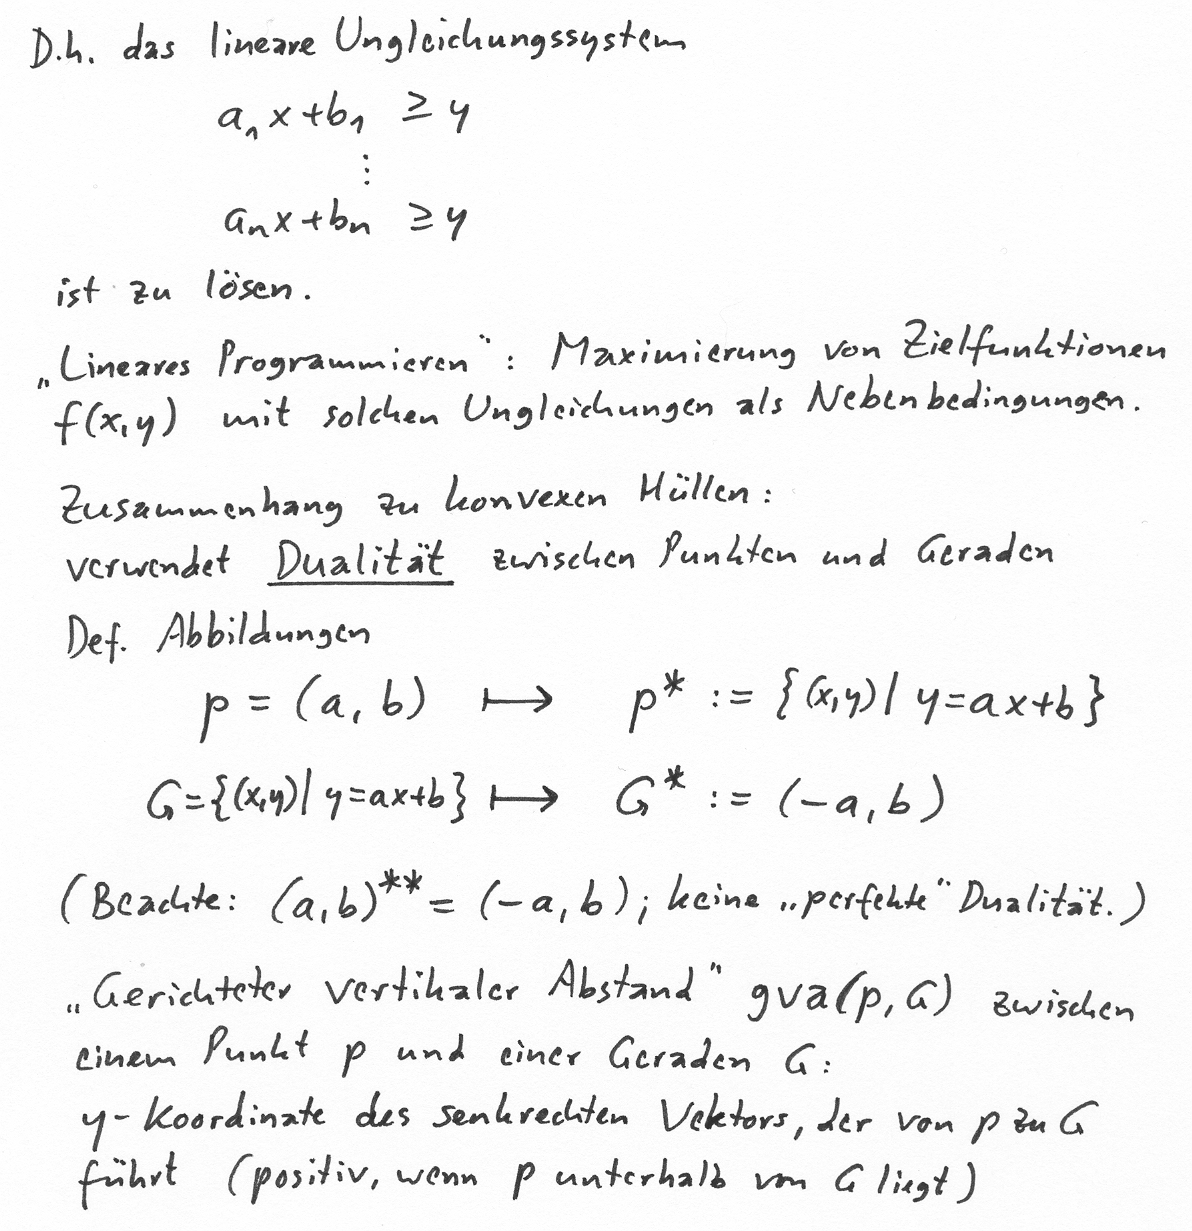 D.h. das lineare Ungleichungssystem
a₁x+b₁ ≥ y
⋮
aₙx+bₙ ≥ y
ist zu lösen.
„Lineares Programmieren": Maximierung von Zielfunktionen
f(x,y) mit solchen Ungleichungen als Nebenbedingungen.
Zusammenhang zu konvexen Hüllen:
verwendet Dualität zwischen Punkten und Geraden
Def. Abbildungen
p = (a, b) ⟼ p* := {(x,y) | y=ax+b}
G={(x,y) | y=ax+b} ⟼ G* := (-a, b)
(Beachte: (a,b)** = (-a, b); keine „perfekte" Dualität.)
„Gerichteter vertikaler Abstand" gva(p, G) zwischen
einem Punkt p und einer Geraden G:
y-Koordinate des senkrechten Vektors, der von p zu G
führt (positiv, wenn p unterhalb von G liegt)